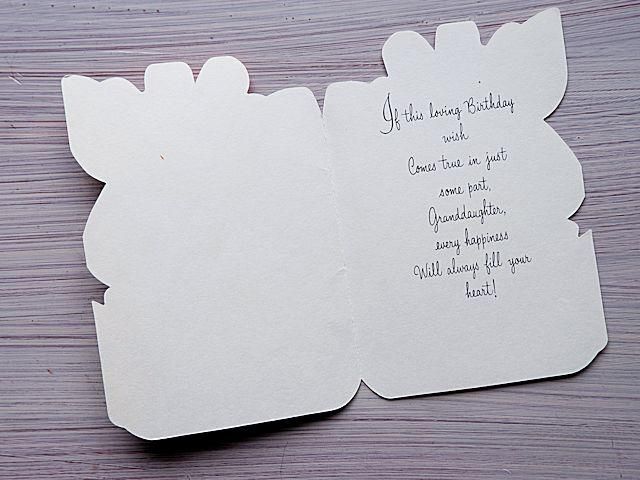 If this loving Birthday
wish
Comes true in just
some part,
Granddaughter,
every happiness
Will always fill your
heart!